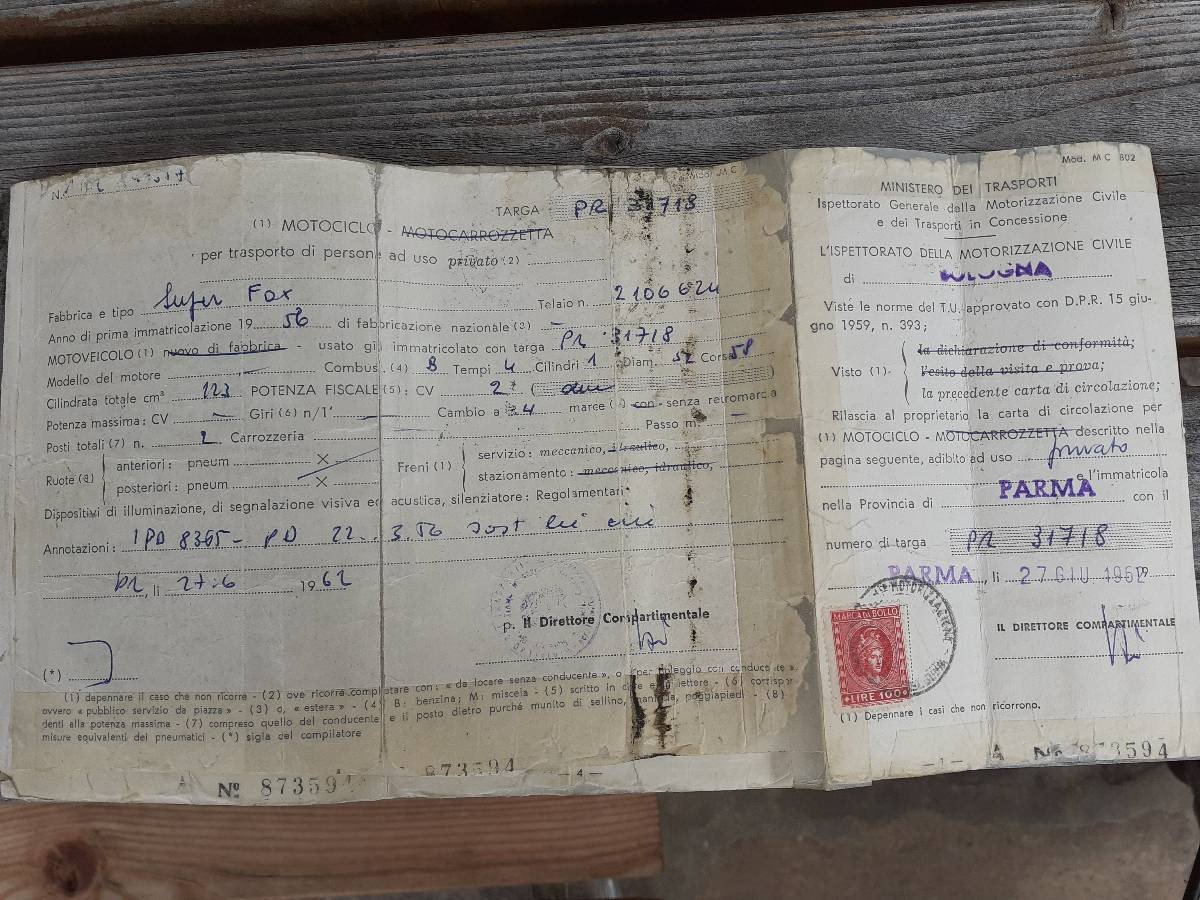 N.
Mod. M C
TARGA PR 31718
(1) MOTOCICLO - MOTOCARROZZETTA
per trasporto di persone ad uso privato (2)
Fabbrica e tipo Super Fox Telaio n. 2106624
Anno di prima immatricolazione 19 56 di fabbricazione nazionale (3) —
MOTOVEICOLO (1) nuovo di fabbrica - usato già immatricolato con targa PR 31718
Modello del motore Combus. (4) B Tempi 4 Cilindri 1 Diam. 52 Corsa 58
Cilindrata totale cm³ 123 POTENZA FISCALE (5): CV 2 (due)
Potenza massima: CV — Giri (6) n/1' — Cambio a 4 marce (1) con - senza retromarcia
Posti totali (7) n. 2 Carrozzeria Passo m. —
Ruote (8) anteriori: pneum × Freni (1) servizio: meccanico, idraulico,
posteriori: pneum × stazionamento: meccanico, idraulico,
Dispositivi di illuminazione, di segnalazione visiva ed acustica, silenziatore: Regolamentari
Annotazioni: 1PD 8365 - PD 22.3.56
li 27.6 1962
p. Il Direttore Compartimentale
(*)
(1) depennare il caso che non ricorre - (2) ove ricorra completare con: « da locare senza conducente », o « per noleggio con conducente »
ovvero « pubblico servizio da piazza » - (3) o, « estera » - (4) B: benzina; M: miscela - (5) scritto in cifre e in lettere - (6) corrispon-
denti alla potenza massima - (7) compreso quello del conducente e il posto dietro purché munito di sellino, maniglia, poggiapiedi - (8)
misure equivalenti dei pneumatici - (*) sigla del compilatore
A Nº 87359 873594
— 4 —
Mod. M C 802
MINISTERO DEI TRASPORTI
Ispettorato Generale della Motorizzazione Civile
e dei Trasporti in Concessione
L'ISPETTORATO DELLA MOTORIZZAZIONE CIVILE
di BOLOGNA
Viste le norme del T.U. approvato con D.P.R. 15 giu-
gno 1959, n. 393;
la dichiarazione di conformità;
Visto (1) l'esito della visita e prova;
la precedente carta di circolazione;
Rilascia al proprietario la carta di circolazione per
(1) MOTOCICLO - MOTOCARROZZETTA descritto nella
pagina seguente, adibito ad uso privato
e l'immatricola
nella Provincia di PARMA con il
numero di targa PR 31718
PARMA, li 27 GIU 1962
MARCA DA BOLLO
LIRE 100
IL DIRETTORE COMPARTIMENTALE
(1) Depennare i casi che non ricorrono.
— 1 — A Nº 873594